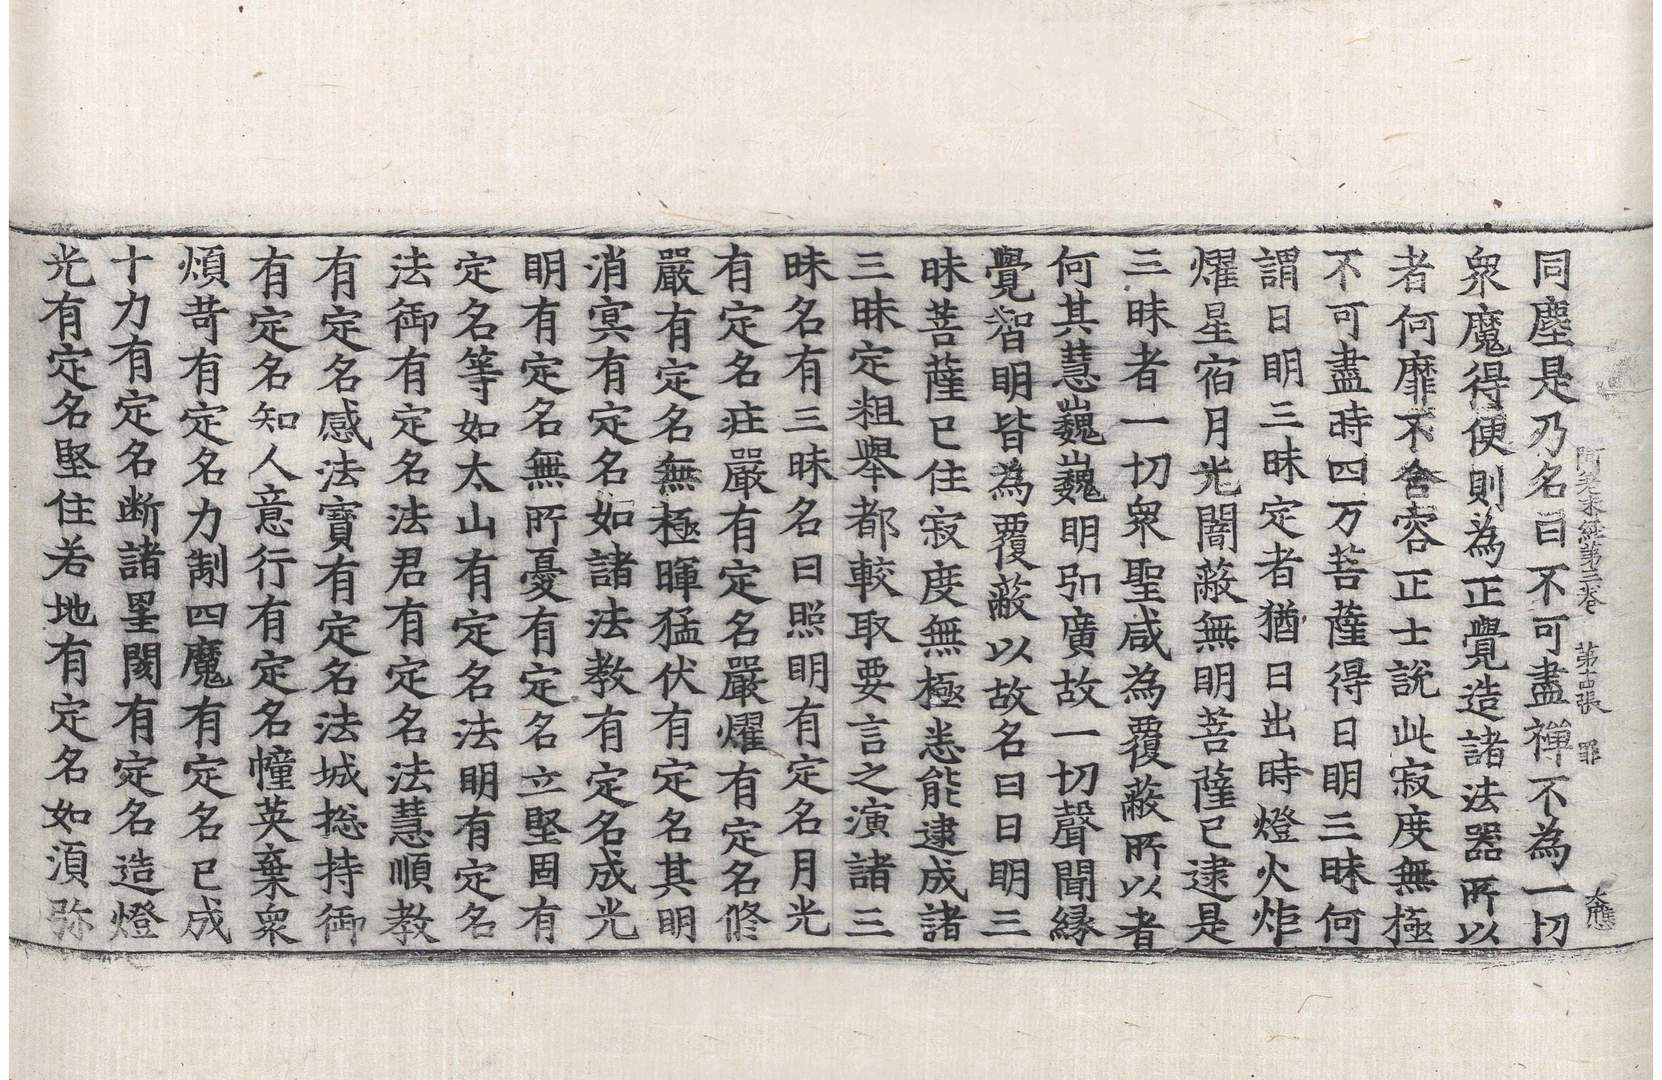 阿差末經第二卷　第十四張　罪
大應
同塵是乃名曰不可盡禪不為一切
衆魔得便則為正覺造諸法器所以
者何靡不含容正士說此寂度無極
不可盡時四万菩薩得日明三昧何
謂日明三昧定者猶日出時燈火炬
燿星宿月光闇蔽無明菩薩已逮是
三昧者一切衆聖咸為覆蔽所以者
何其慧巍巍明弘廣故一切聲聞縁
覺智明皆為覆蔽以故名曰日明三
昧菩薩已住寂度無極悉能逮成諸
三昧定粗舉都較取要言之演諸三
昧名有三昧名曰照明有定名月光
有定名莊嚴有定名嚴燿有定名修
嚴有定名無極暉猛伏有定名其明
消㝠有定名如諸法教有定名成光
明有定名無所憂有定名立堅固有
定名等如太山有定名法明有定名
法御有定名法君有定名法慧順教
有定名感法寶有定名法城捴持御
有定名知人意行有定名幢英棄衆
煩苛有定名力制四魔有定名已成
十力有定名断諸罣閡有定名造燈
光有定名堅住若地有定名如湏弥